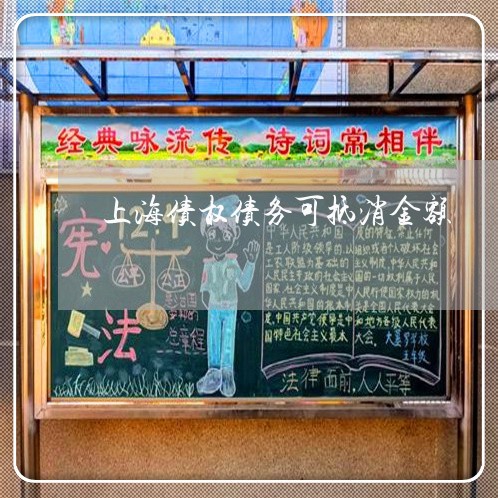 经典咏流传 诗词常相伴
上海债权债务可抵消金额
宪
法
公平
公正
总章程
中华人民共和国
是工人阶级领导的,以
工农联盟为基础的
人民民主专政的社会主义
国家,社会主义制度是中
华人民共和国的根本制
度,中国共产党领导是中
国特色社会主义最本
质的特征,禁止任何
组织或者个人破坏社会
主义制度,中华人民共和
国的一切权利属于人民,
人民行使国家权力的机
关是全国人民代表大会
和地方各级人民代表
大会。
五年级
法律面前,人人平等